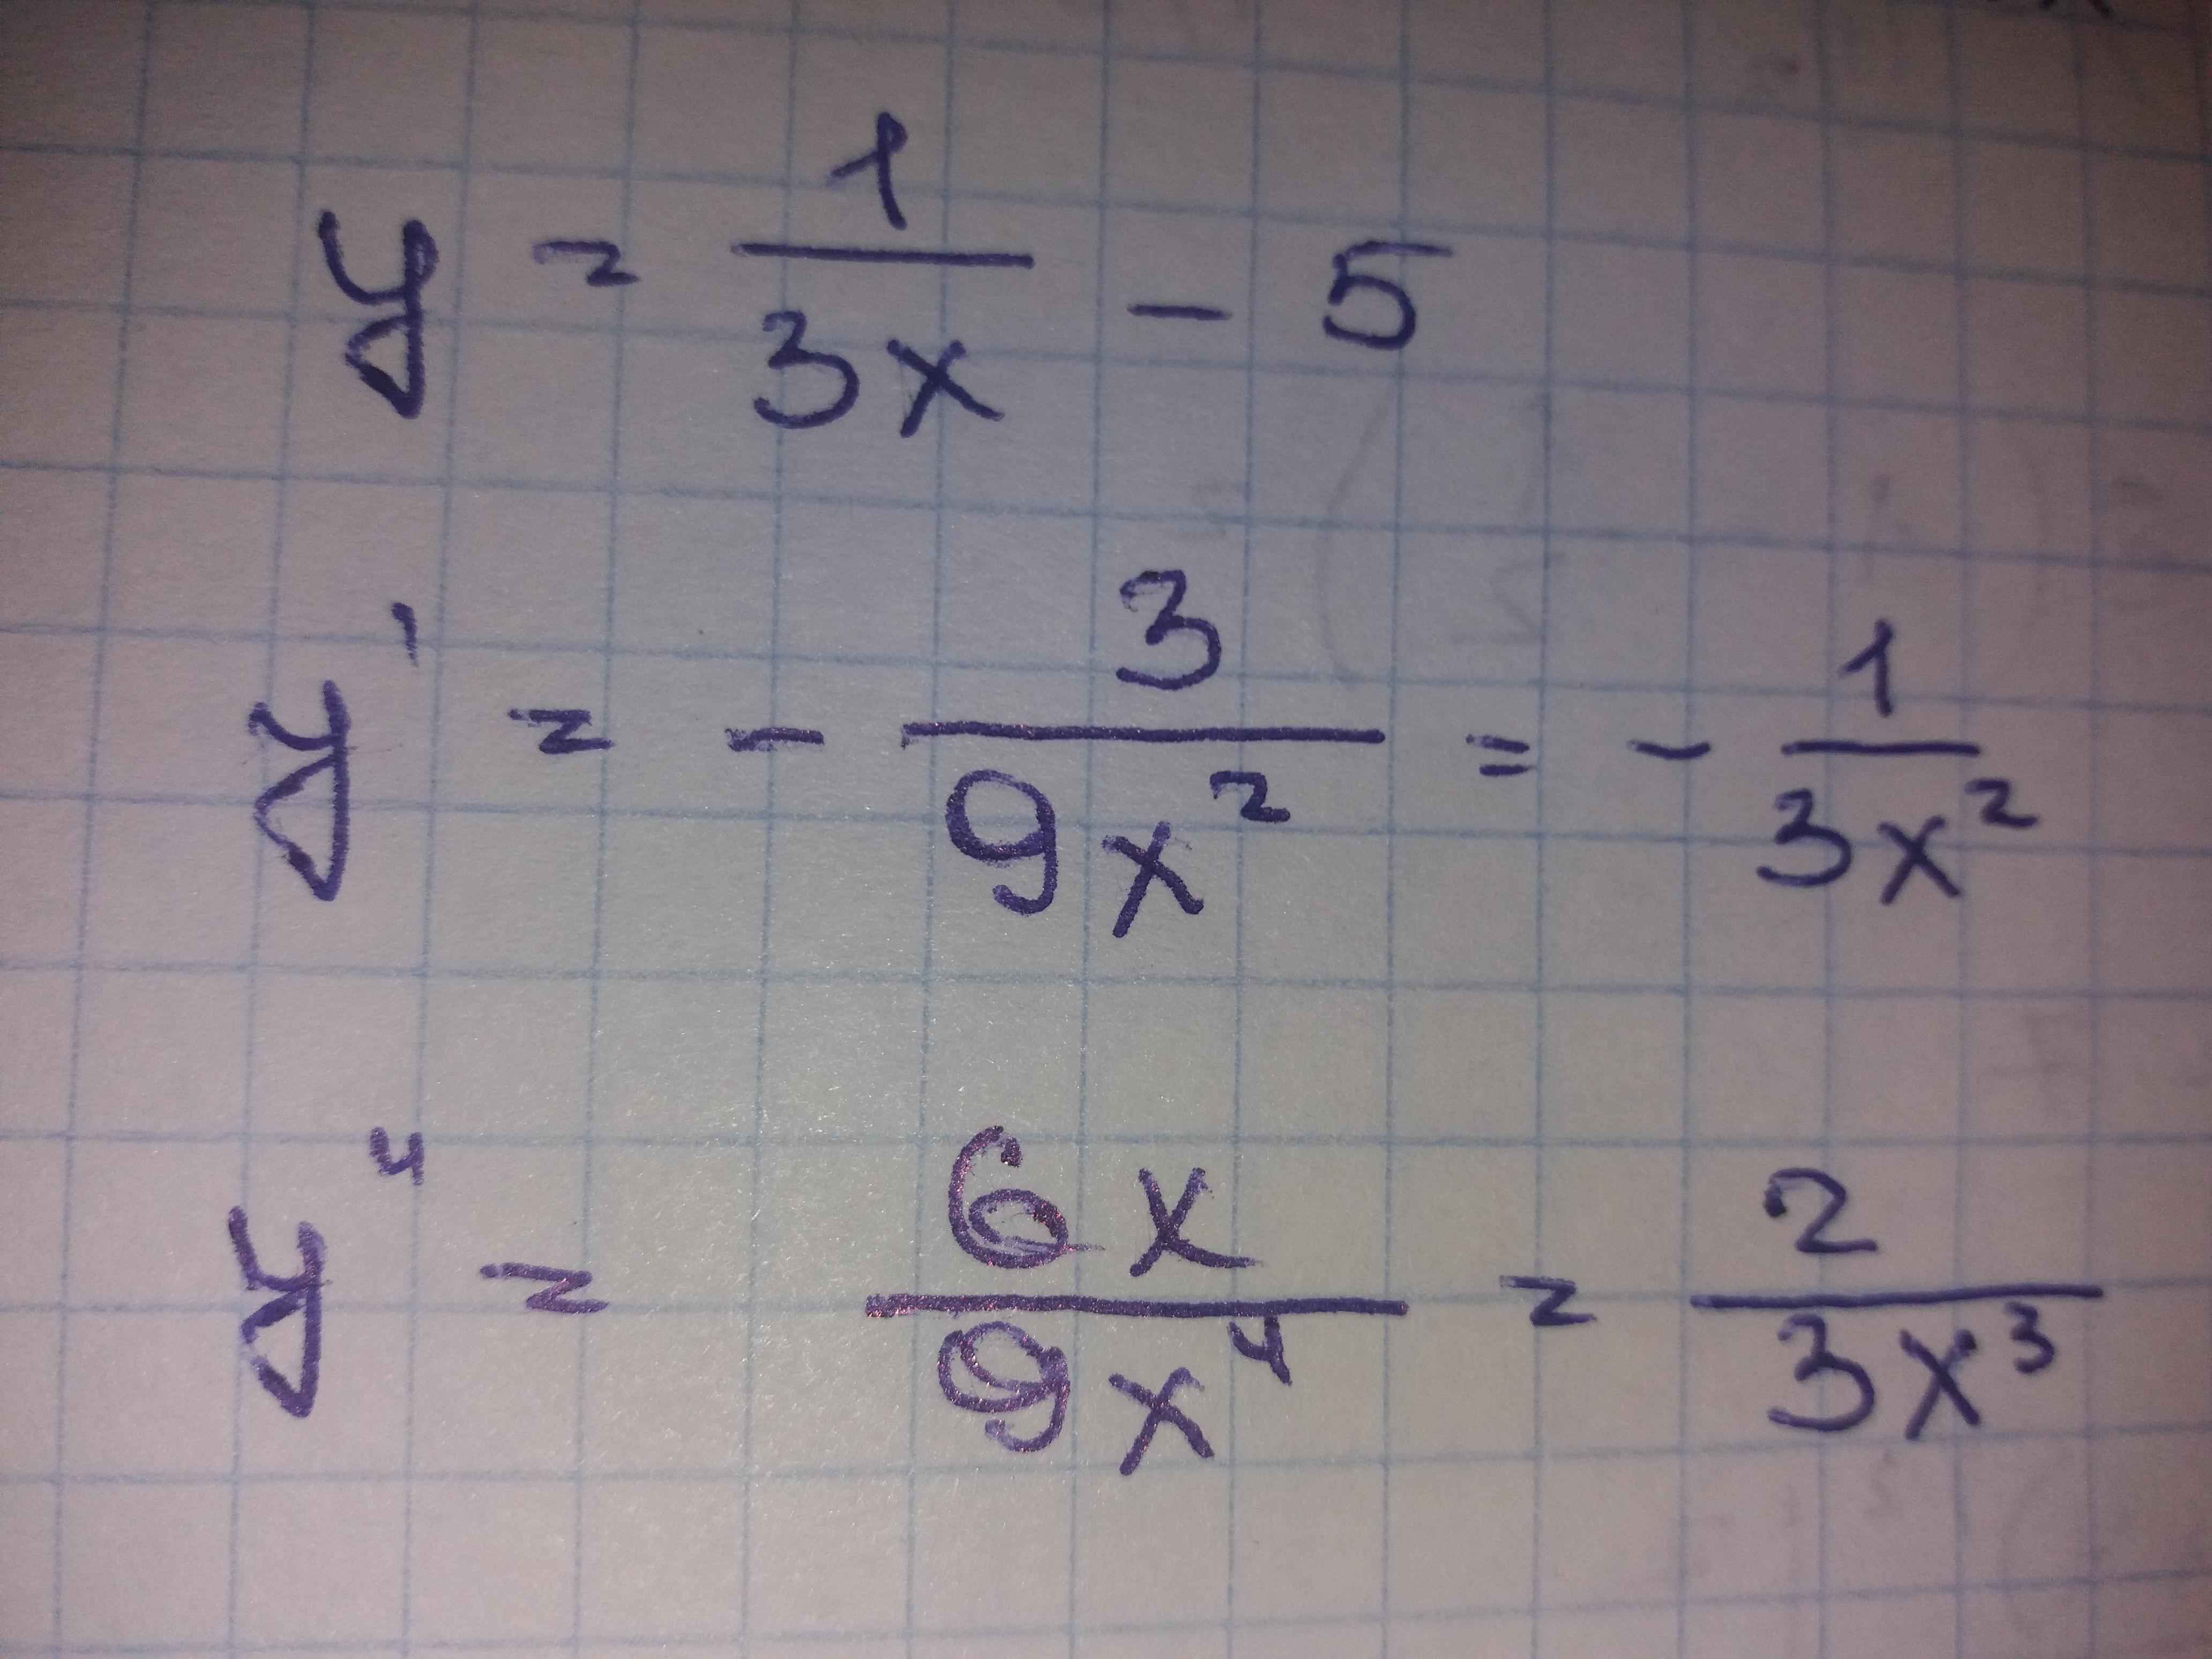 y = 1/(3x) - 5
y' = - 3/(9x²) = - 1/(3x²)
y'' = 6x/(9x⁴) = 2/(3x³)